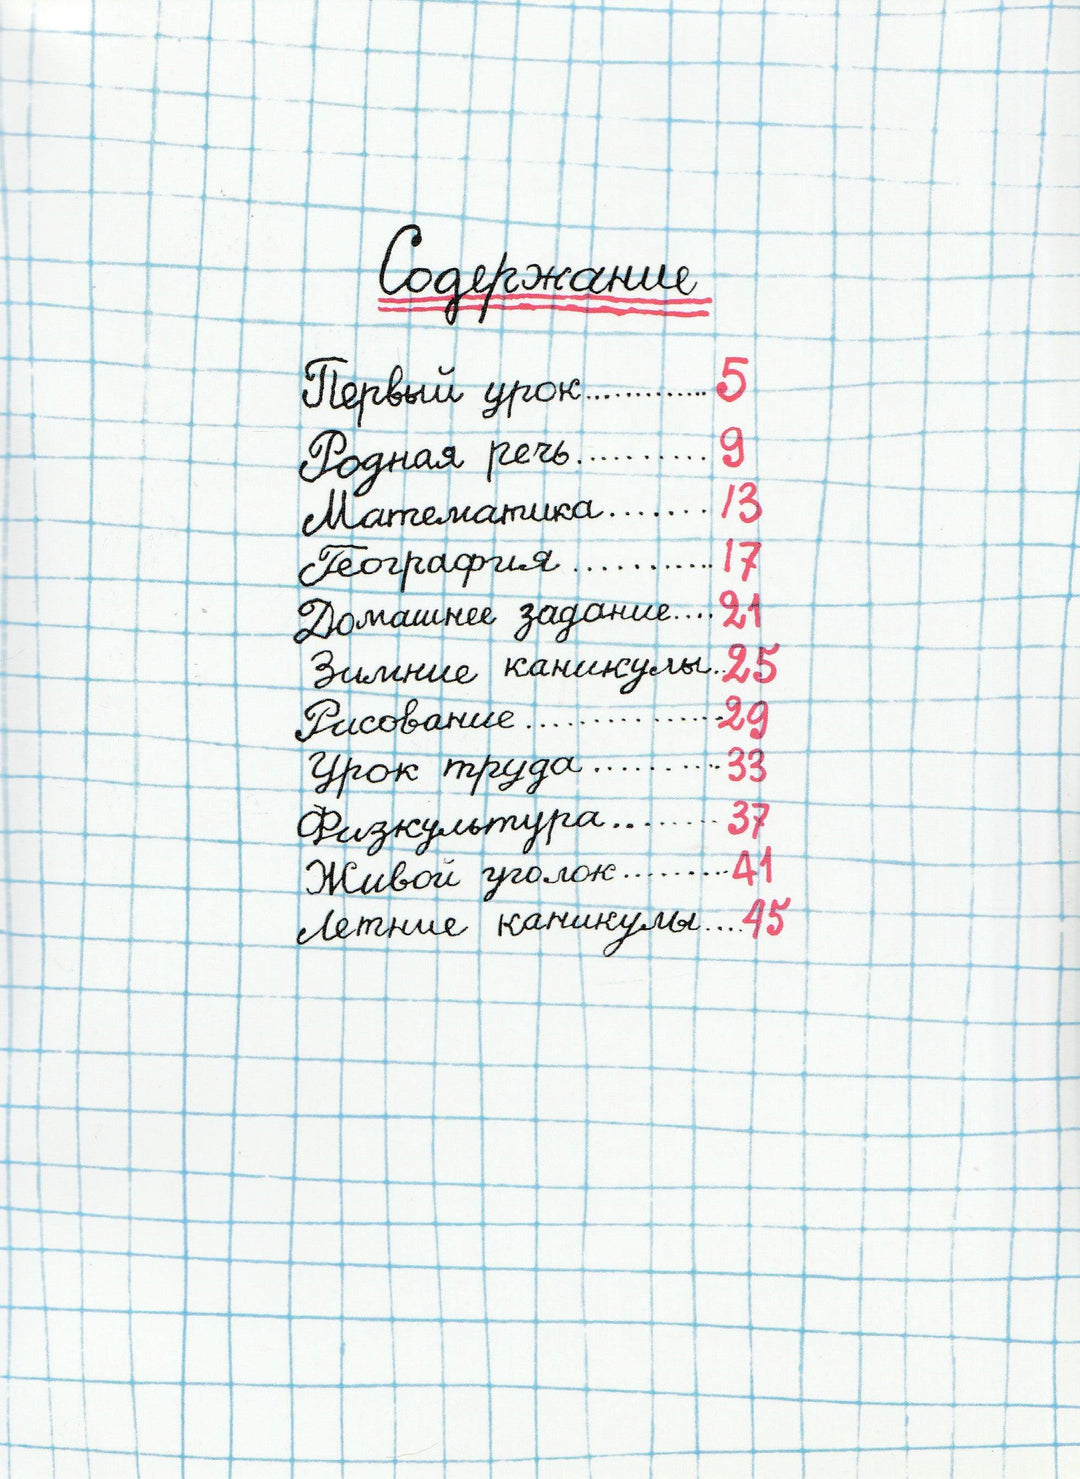 Содержание
Первый урок............5
Родная речь..........9
Математика.......13
География...........17
Домашнее задание....21
Зимние каникулы..25
Рисование..............29
Урок труда.........33
Физкультура.........37
Живой уголок.........41
Летние каникулы....45